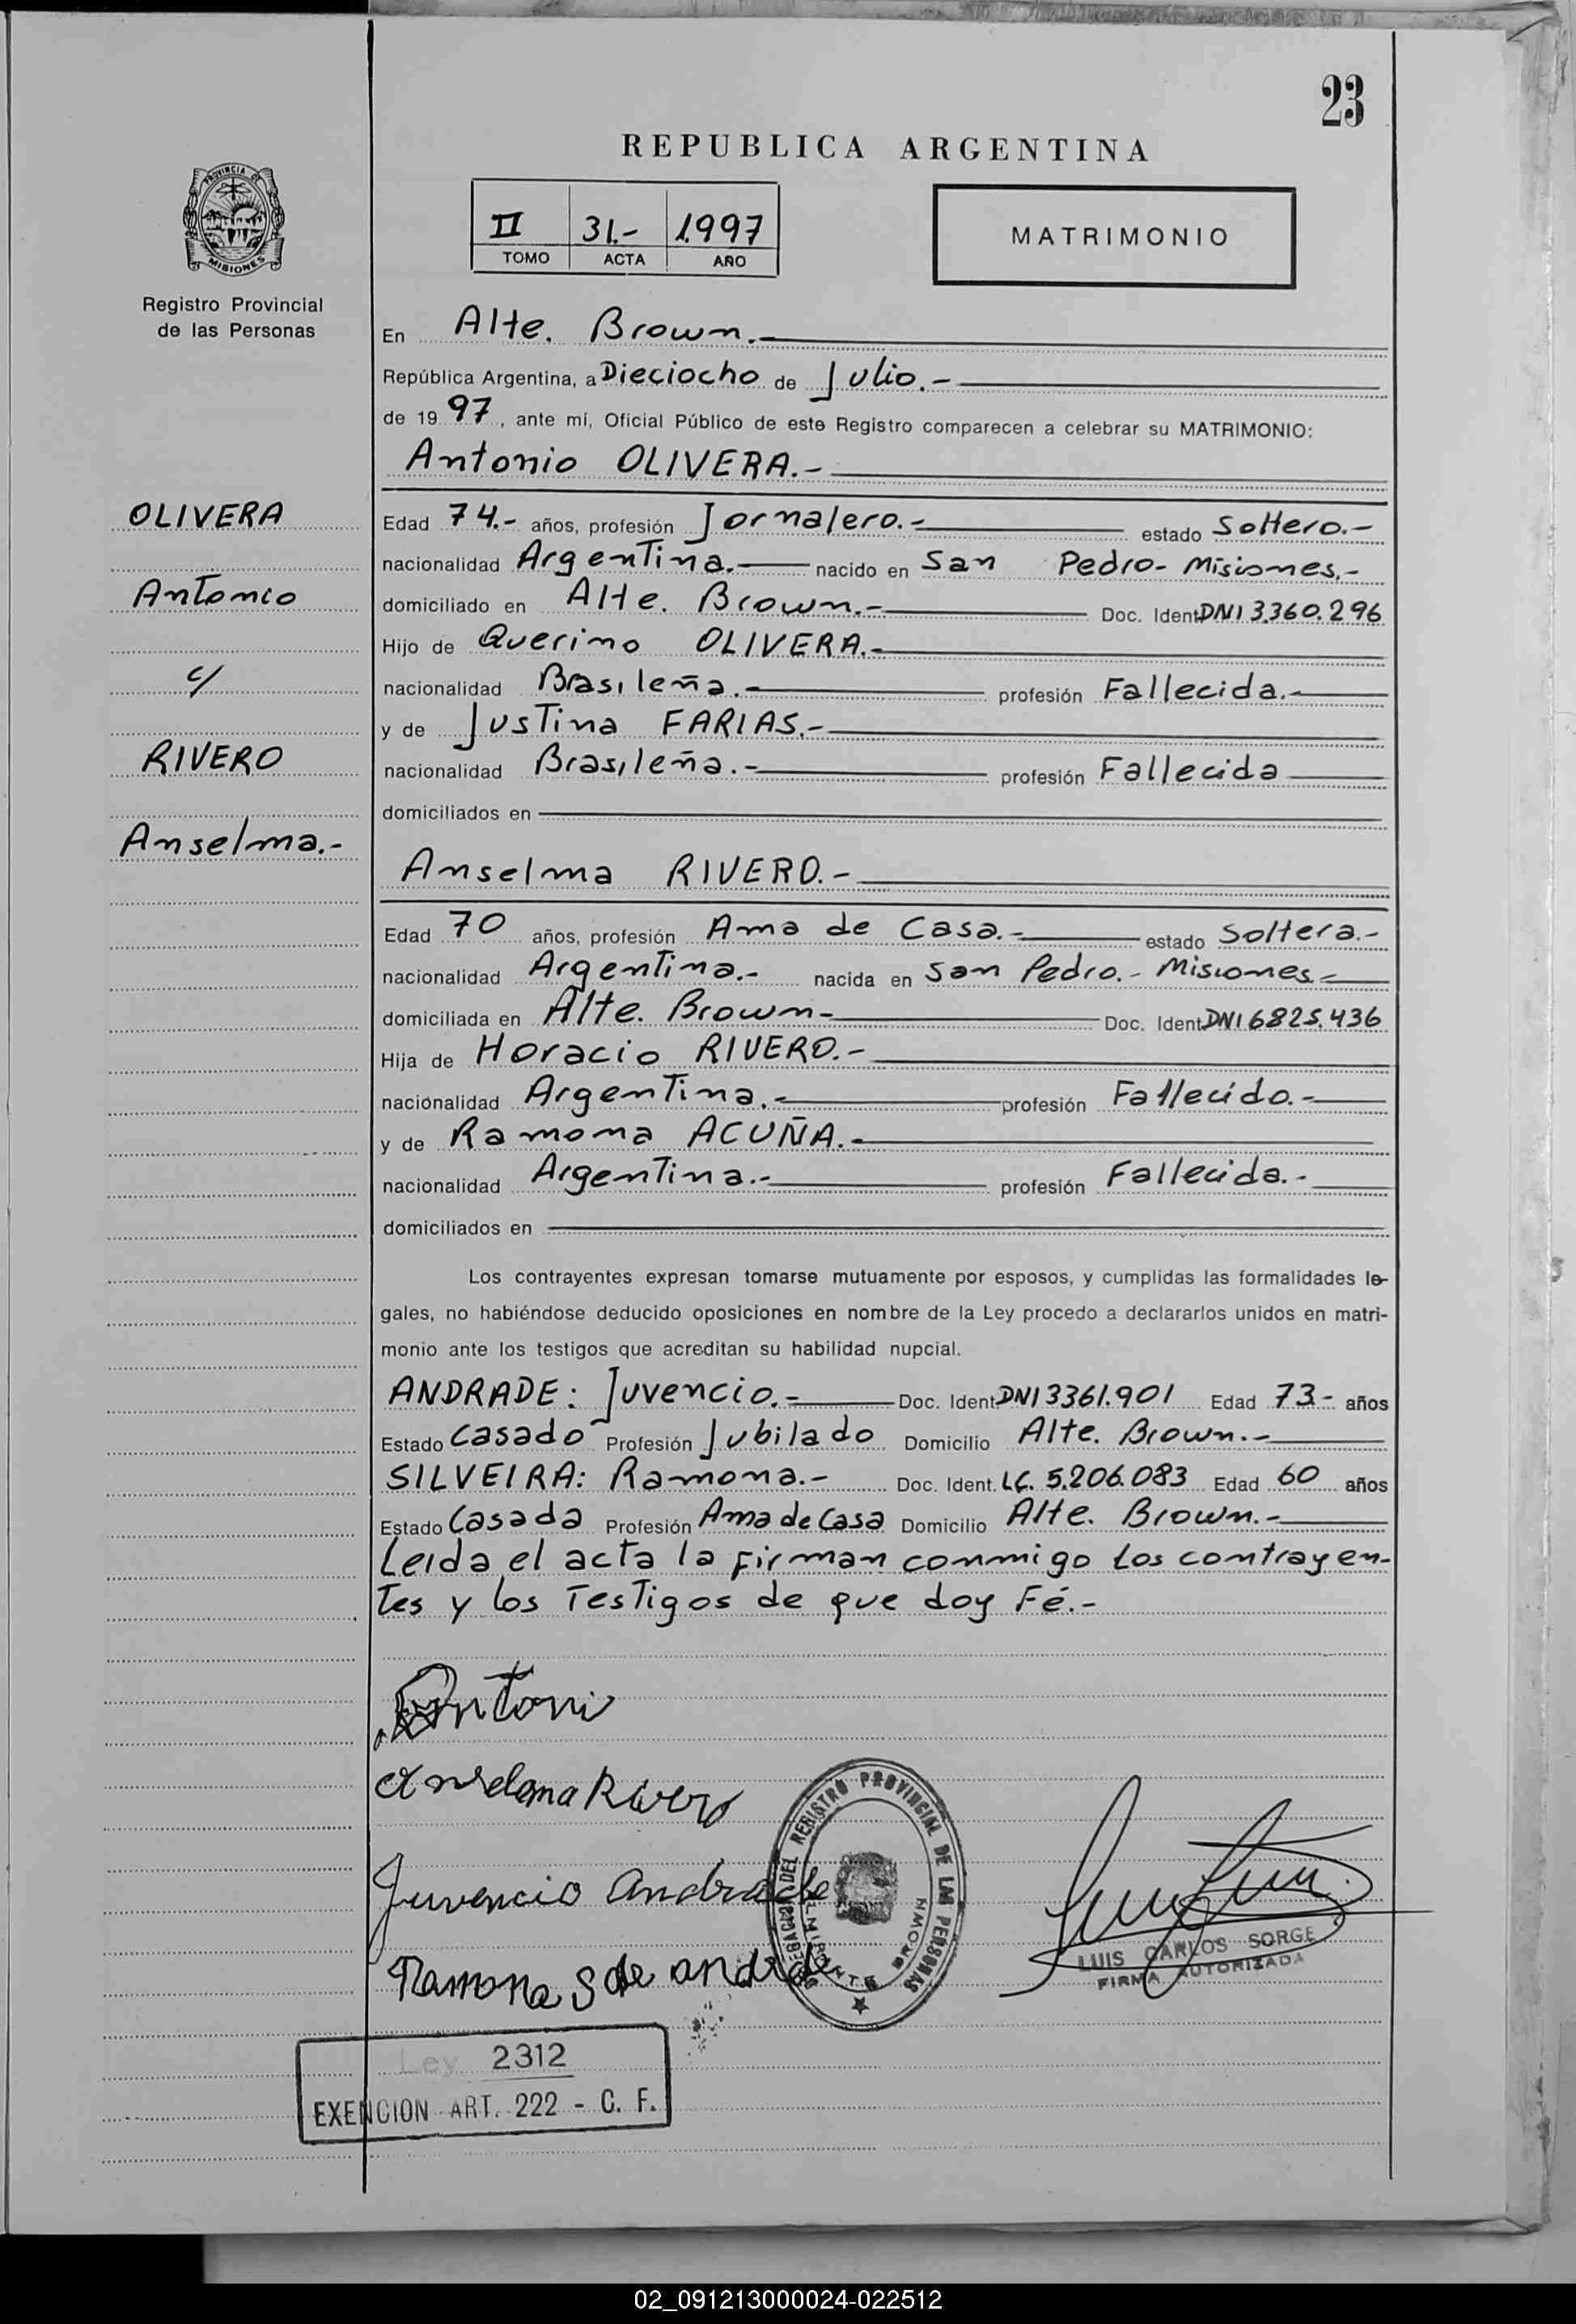 23
REPUBLICA ARGENTINA
PROVINCIA DE
MISIONES
Registro Provincial
de las Personas
II 31.- 1.997
TOMO ACTA AÑO
MATRIMONIO
En Alte. Brown.-
República Argentina, a Dieciocho de Julio.-
de 19 97, ante mí, Oficial Público de este Registro comparecen a celebrar su MATRIMONIO:
Antonio OLIVERA.-
OLIVERA
Antonio
c/
RIVERO
Anselma.-
Edad 74.- años, profesión Jornalero.- estado Soltero.-
nacionalidad Argentina.- nacido en San Pedro- Misiones.-
domiciliado en Alte. Brown.- Doc. Ident. DNI 3.360.296
Hijo de Querino OLIVERA.-
nacionalidad Brasileña.- profesión Fallecida.-
y de Justina FARIAS.-
nacionalidad Brasileña.- profesión Fallecida
domiciliados en
Anselma RIVERO.-
Edad 70 años, profesión Ama de Casa.- estado Soltera.-
nacionalidad Argentina.- nacida en San Pedro.- Misiones.-
domiciliada en Alte. Brown- Doc. Ident. DNI 6825.436
Hija de Horacio RIVERO.-
nacionalidad Argentina.- profesión Fallecido.-
y de Ramona ACUÑA.-
nacionalidad Argentina.- profesión Fallecida.-
domiciliados en
Los contrayentes expresan tomarse mutuamente por esposos, y cumplidas las formalidades le-
gales, no habiéndose deducido oposiciones en nombre de la Ley procedo a declararlos unidos en matri-
monio ante los testigos que acreditan su habilidad nupcial.
ANDRADE: Juvencio.- Doc. Ident. DNI 3361.901 Edad 73- años
Estado Casado Profesión Jubilado Domicilio Alte. Brown.-
SILVEIRA: Ramona.- Doc. Ident. LC. 5.206.083 Edad 60 años
Estado Casada Profesión Ama de Casa Domicilio Alte. Brown.-
Leida el acta la firman conmigo los contrayen-
tes y los Testigos de que doy Fé.-
Antoni
Anselma Rivero
Juvencio Andrade
Ramona S de Andrade
DELEGACION DEL REGISTRO PROVINCIAL DE LAS PERSONAS
ALMIRANTE BROWN
LUIS CARLOS SORGE
FIRMA AUTORIZADA
Ley 2312
EXENCION ART. 222 - C. F.
02_091213000024-022512